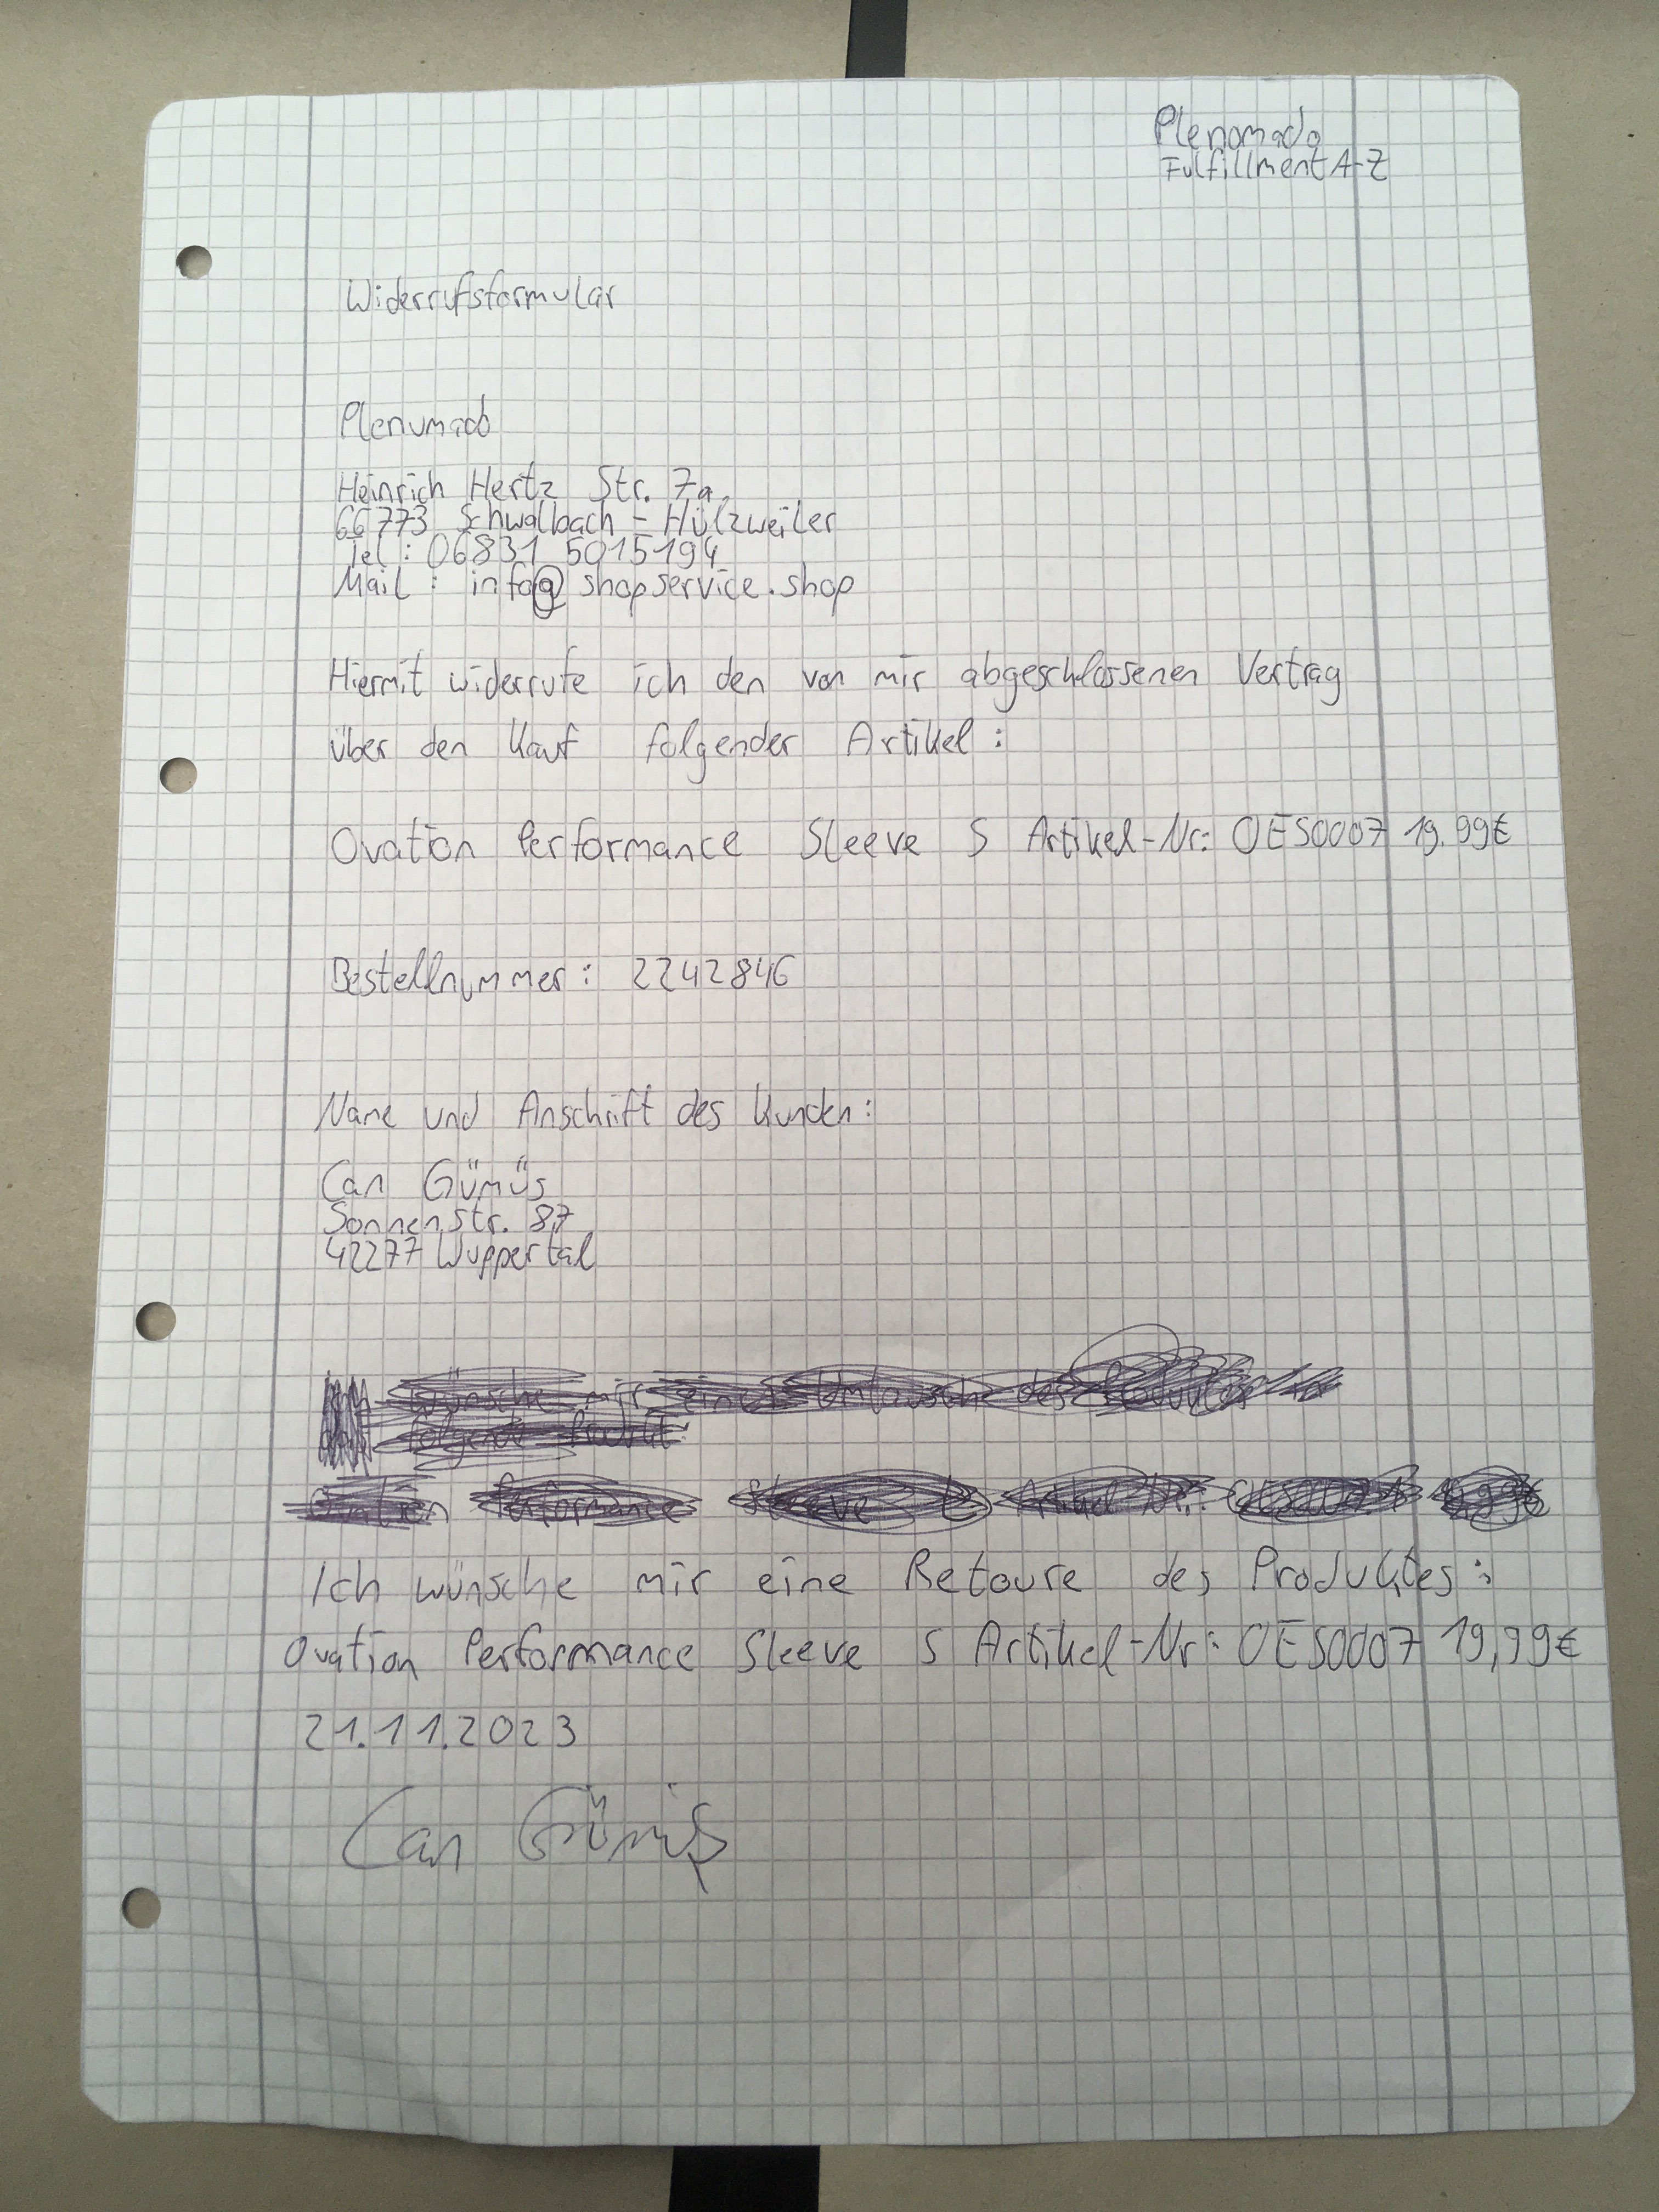 Plenomado
Fulfillment A-Z
Widerrufsformular
Plenumado
Heinrich Hertz Str. 7a
66773 Schwalbach - Hülzweiler
Tel: 06831 5015194
Mail: info@shopservice.shop
Hiermit widerrufe ich den von mir abgeschlossenen Vertrag
über den Kauf folgender Artikel:
Ovation Performance Sleeve S Artikel-Nr: OES0007 19.99€
Bestellnummer: 2242846
Name und Anschrift des Kunden:
Can Gümüs
Sonnenstr. 87
42277 Wuppertal
wünsche mir einen Umtausch des
folgende Produkt:
Ovation Performance Sleeve L Artikel Nr.:
Ich wünsche mir eine Retoure des Produktes:
Ovation Performance Sleeve S Artikel-Nr: OES0007 19,99€
21.11.2023
Can Gümüş